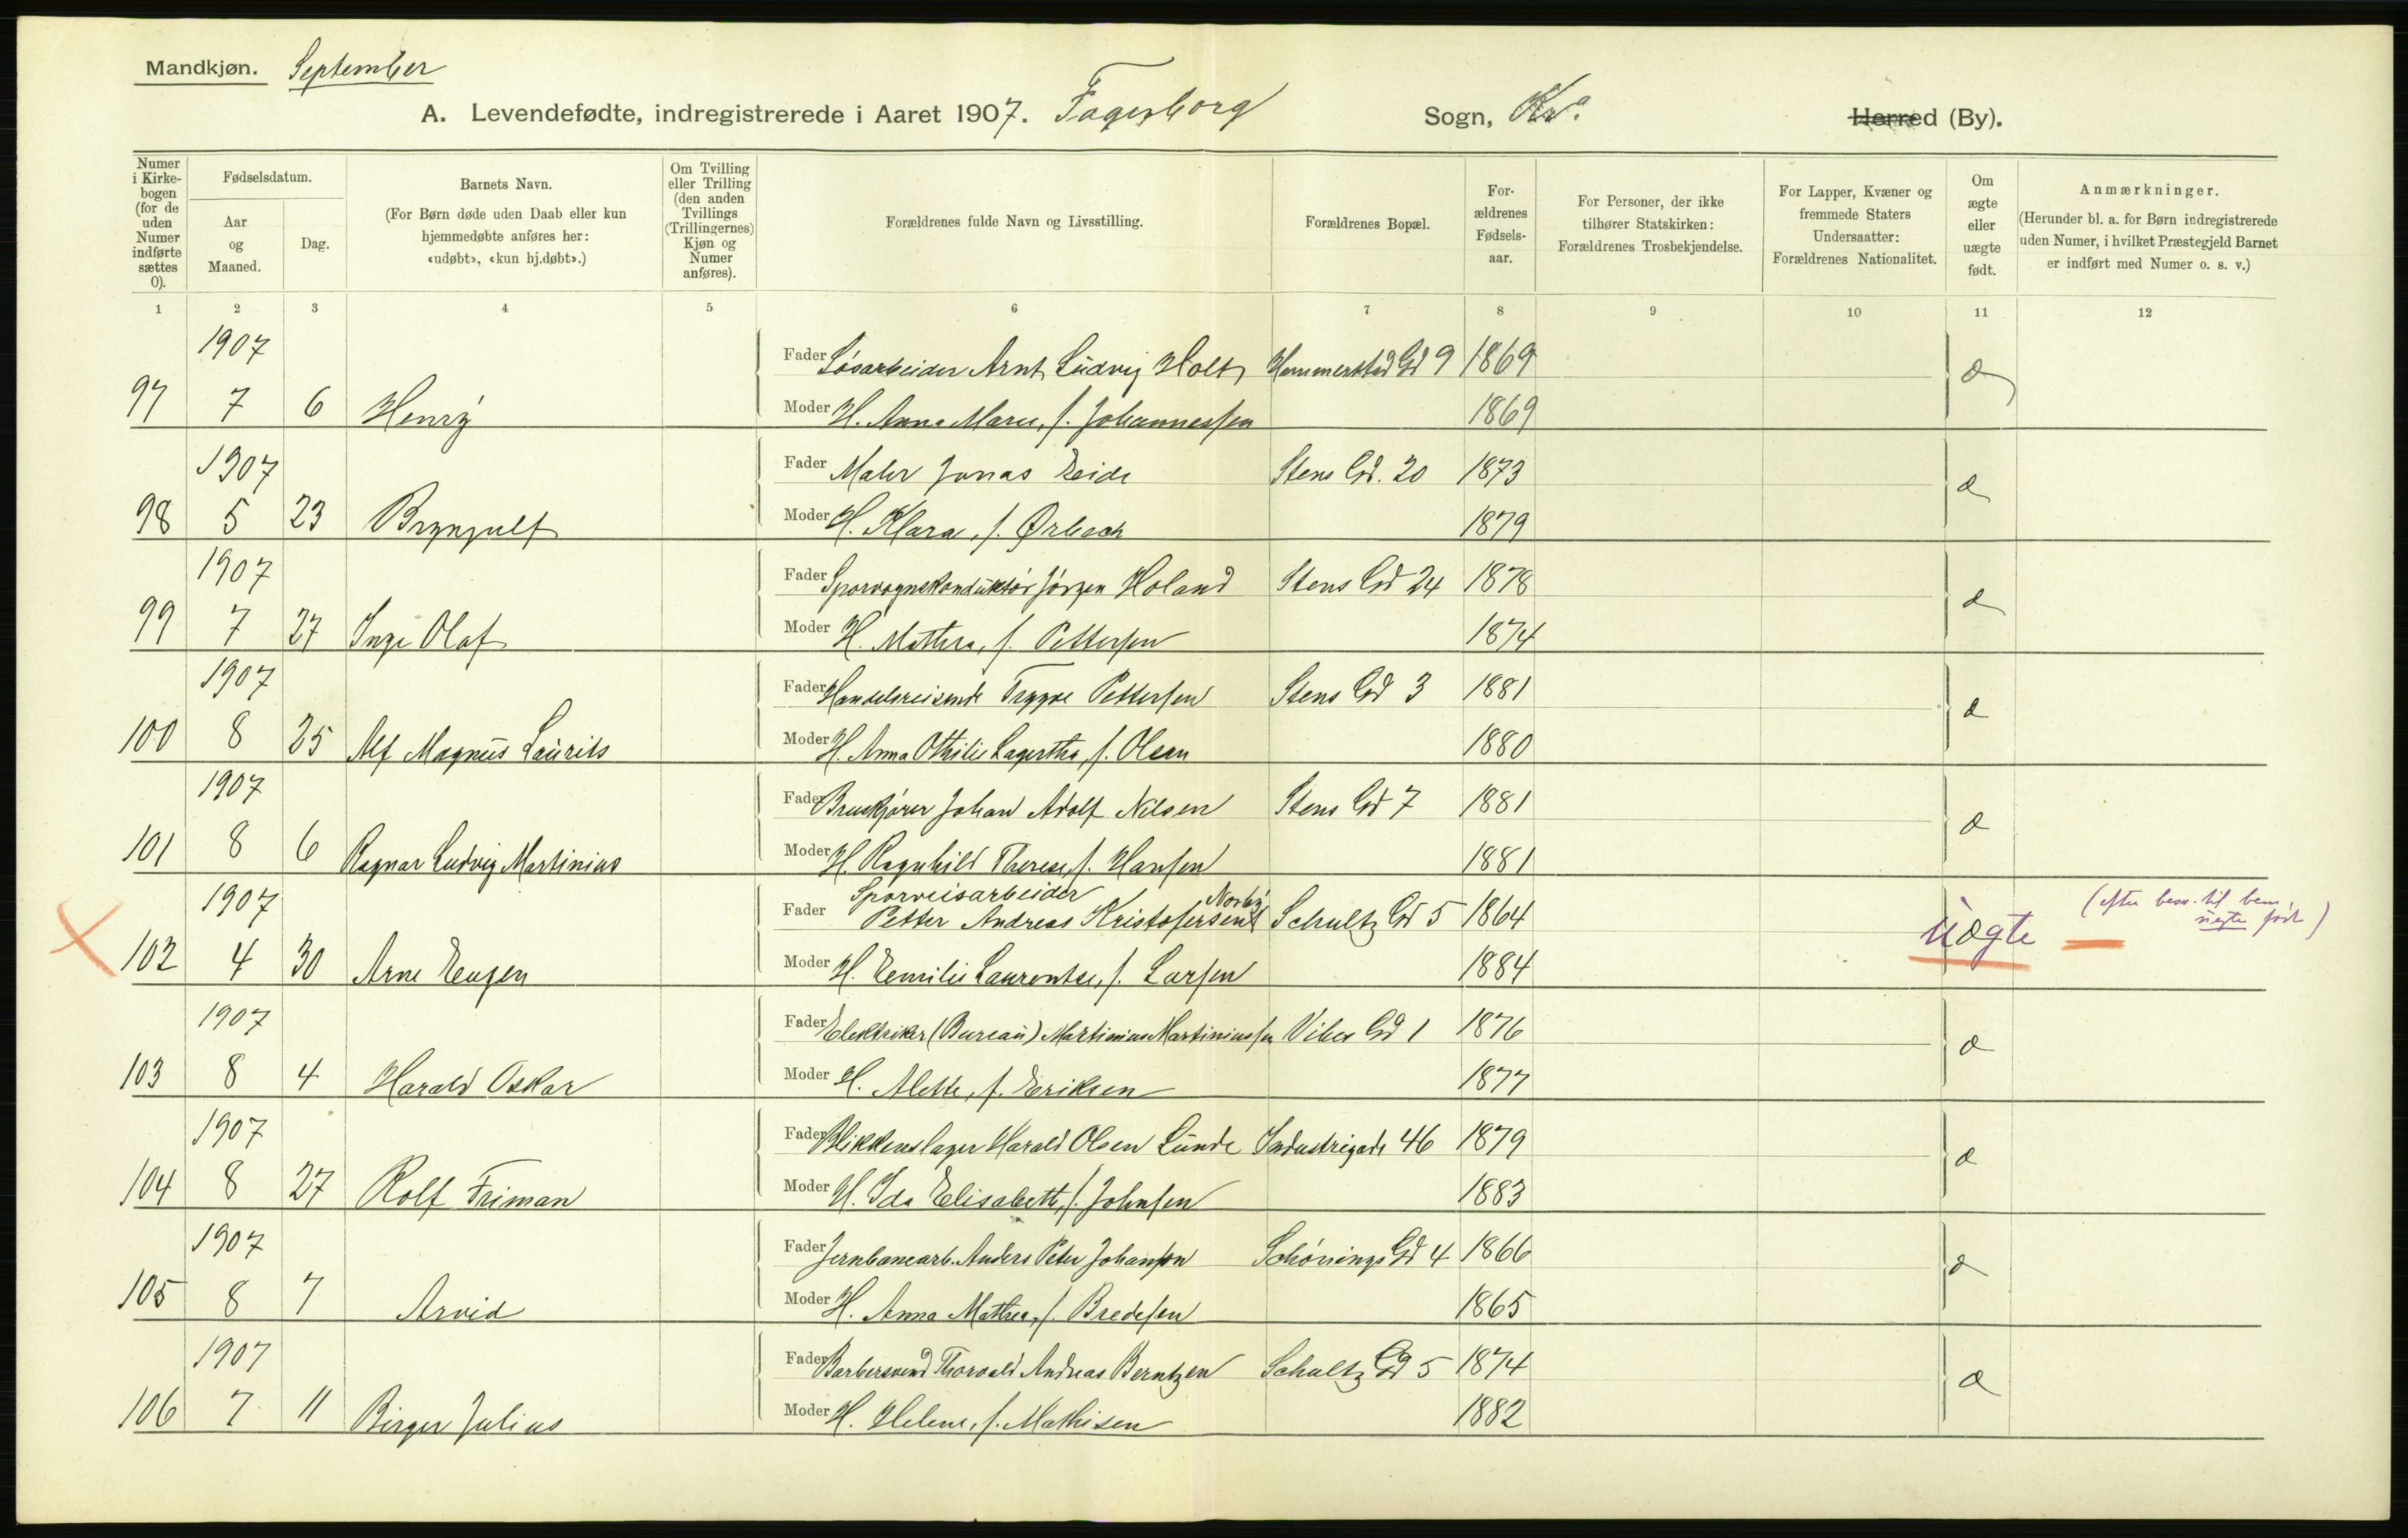 Mandkjøn. September
A. Levendefødte, indregistrerede i Aaret 1907. Fagerborg Sogn, Kra. Herred (By).
Numer i Kirke-bogen (for de uden Numer indførte sættes 0).
Fødselsdatum.
Aar og Maaned.
Dag.
Barnets Navn.
(For Børn døde uden Daab eller kun hjemmedøbte anføres her: «udøbt», «kun hj.døbt».)
Om Tvilling eller Trilling (den anden Tvillings (Trillingernes) Kjøn og Numer anføres).
Forældrenes fulde Navn og Livsstilling.
Forældrenes Bopæl.
For-ældrenes Fødsels-aar.
For Personer, der ikke tilhører Statskirken: Forældrenes Trosbekjendelse.
For Lapper, Kvæner og fremmede Staters Undersaatter: Forældrenes Nationalitet.
Om ægte eller uægte født.
Anmærkninger.
(Herunder bl. a. for Børn indregistrerede uden Numer, i hvilket Præstegjeld Barnet er indført med Numer o. s. v.)
1 2 3 4 5 6 7 8 9 10 11 12
1907 Fader Løsarbeider Arnt Ludvig Holt Hammerstad Gd 9 1869 æ
97 7 6 Henry Moder H. Anna Marie, f. Johannessen 1869
1907 Fader Maler Jonas Eide Stens Gd. 20 1873 æ
98 5 23 Brynjulf Moder H. Klara, f. Ørbech 1879
1907 Fader Sporvognskonduktør Jørgen Holand Stens Gd 24 1878 æ
99 7 27 Inge Olaf Moder H. Mathea, f. Pettersen 1874
1907 Fader Handelsreisende Trygve Pettersen Stens Gd 3 1881 æ
100 8 25 Alf Magnus Laurits Moder H. Anna Othilie Lagertha, f. Olsen 1880
1907 Fader Bruskjører Johan Adolf Nilsen Stens Gd 7 1881 æ
101 8 6 Ragnar Ludvig Martinius Moder H. Ragnhild Therese, f. Hansen 1881
1907 Fader Sporveisarbeider Petter Andreas Kristofersen Norby Schultz Gd 5 1864 uægte (efter besv. til bem. uægte født)
102 4 30 Arne Eugen Moder H. Emilie Laurentse, f. Larsen 1884
1907 Fader Elektriker (Bureau) Martinius Martiniussen Vibes Gd 1 1876 æ
103 8 4 Harald Oskar Moder H. Alette, f. Eriksen 1877
1907 Fader Blikkenslager Harald Olsen Lunde Industrigade 46 1879 æ
104 8 27 Rolf Friman Moder H. Ida Elisabeth, f. Johnsen 1883
1907 Fader Jernbanearb. Anders Peter Johansen Schønings Gd 4 1866 æ
105 8 7 Arvid Moder H. Anna Mathea, f. Bredesen 1865
1907 Fader Barbersvend Thorvald Andreas Berntzen Schultz Gd 5 1874 æ
106 7 11 Birger Julius Moder H. Helene, f. Mathisen 1882